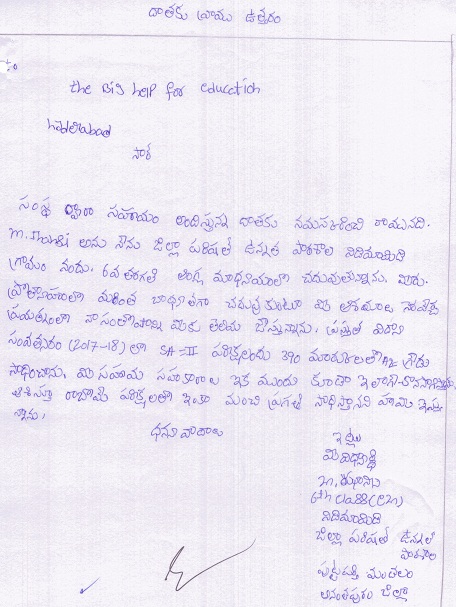 దాతకు వ్రాయు ఉత్తరం
to
the Big help for education
hyderabad
సార్
సంస్థ ద్వారా సహాయం అందిస్తున్న దాతకు నమస్కరించి రాయునది.
అను నేను జిల్లా పరిషత్ ఉన్నత పాఠశాల నిడిమామిడి
గ్రామం నందు. 6వ తరగతి ఆంగ్ల మాధ్యమంలో చదువుతున్నాను. మీరు.
ప్రోత్సాహంతో మరింత బాధ్యతగా చదువుకుంటూ మీ ఆశయాల
ప్రయత్నంలో నా సంతోషాన్ని మీకు తెలియ చేస్తున్నాను. ప్రస్తుత విద్యా
సంవత్సరం (2017-18) లో SA-II పరీక్షలందు 390 మార్కులతో A2 గ్రేడు
సాధించాను. మీ సహాయ సహకారాలు ఇక ముందు కూడా ఇలాగే
ఆశిస్తూ రాబోయే పరీక్షలతో ఇంకా మంచి ప్రగతి సాధిస్తానని హామి ఇస్తు
న్నాను.
ధన్యవాదాలు
ఇట్లు
మీ విద్యార్థి
6th class (em)
నిడిమామిడి
జిల్లా పరిషత్ ఉన్నత
పాఠశాల
పుట్టపర్తి మండలం
అనంతపురం జిల్లా